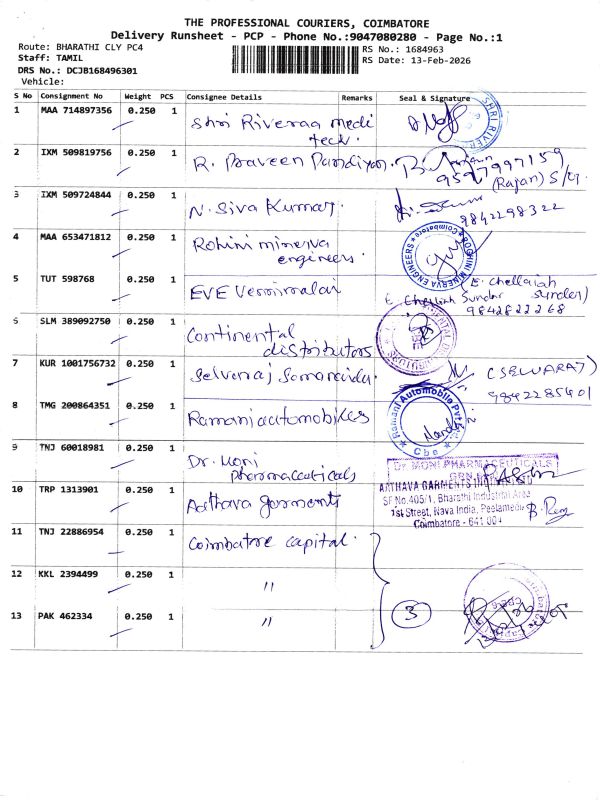 THE PROFESSIONAL COURIERS, COIMBATORE
Delivery Runsheet - PCP - Phone No.:9047080280 - Page No.:1
Route: BHARATHI CLY PC4
RS No.: 1684963
Staff: TAMIL
RS Date: 13-Feb-2026
DRS No.: DCJB168496301
Vehicle:
S No Consignment No Weight PCS Consignee Details Remarks Seal & Signature
1 MAA 714897356 0.250 1 Shri Riveraa medi
tech.
SHRI RIVER
2 IXM 509819756 0.250 1 R. Praveen Pandiyan.
9597997159
(Rajan) S/G
3 IXM 509724844 0.250 1 N. Siva Kumar.
9842298322
4 MAA 653471812 0.250 1 Rohini minerva
engineers.
ROGHINI MINERVA ENGINEERS
Coimbatore
5 TUT 598768 0.250 1 EVE Vermimalai
E. Chellaiah
Sunder)
E Chelliah Sundar
9842822268
6 SLM 389092750 0.250 1 Continental
distributors
7 KUR 1001756732 0.250 1 Selveraj
(SELVARAJ)
9842285401
8 TMG 200864351 0.250 1 Ramani automobiles
Ramani Automobile Pvt
Cbe
9 TNJ 60018981 0.250 1 Dr. Moni
pharmaceuticals
Dr. MONI PHARMACEUTICALS
10 TRP 1313901 0.250 1 Aathava garments
AATHAVA GARMENTS
SF No.405/1, Bharathi Industrial Area
1st Street, Nava India, Peelamedu
Coimbatore - 641 004
11 TNJ 22886954 0.250 1 Coimbatore capital.
12 KKL 2394499 0.250 1 "
13 PAK 462334 0.250 1 "
3